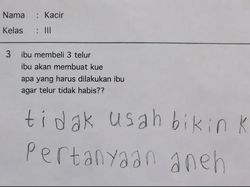 Nama : Kacir
Kelas : III
3 ibu membeli 3 telur
ibu akan membuat kue
apa yang harus dilakukan ibu
agar telur tidak habis??
tidak usah bikin k
Pertanyaan aneh